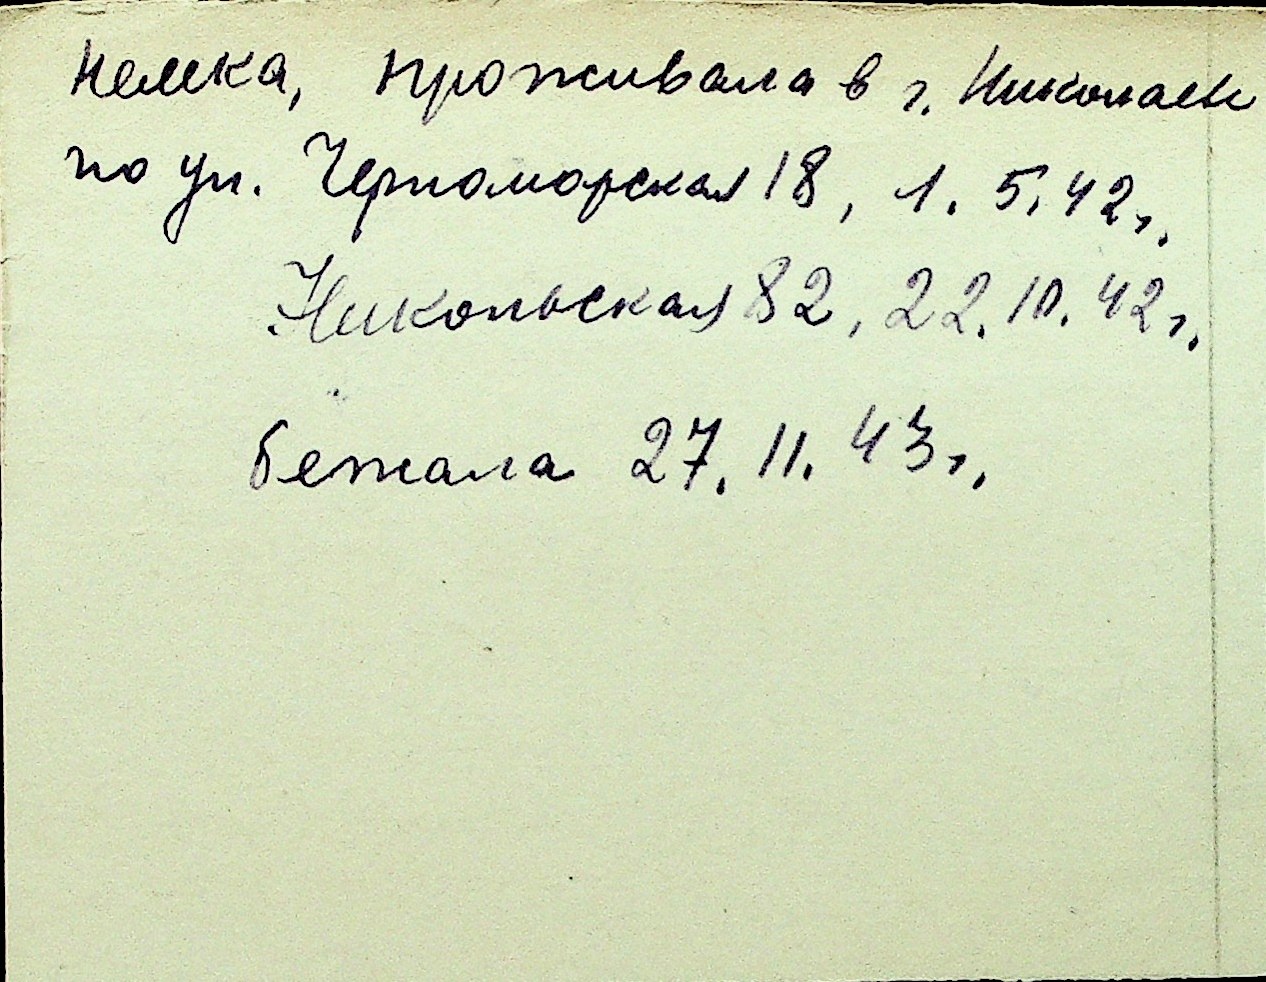 немка, проживала в г. Николаеве
по ул. Черноморская 18, 1.5.42г.
Никольская 82, 22.10.42г.
бежала 27.11.43г.